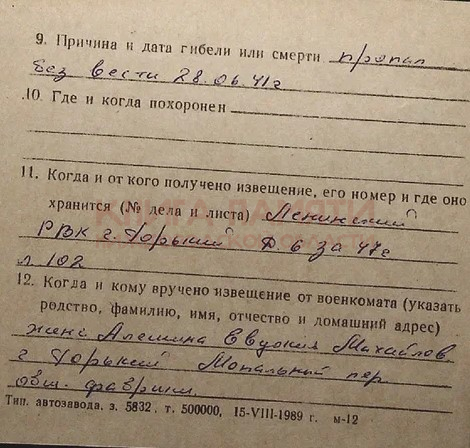 9. Причина и дата гибели или смерти пропал
без вести 28.06.41г
10. Где и когда похоронен
11. Когда и от кого получено извещение, его номер и где оно
хранится (№ дела и листа) Ленинский
РВК г. Горький Д 6 за 47г
л 102
12. Когда и кому вручено извещение от военкомата (указать
родство, фамилию, имя, отчество и домашний адрес)
жене Алешина Евдокия Михайлов.
г Горький пер
общ.
Тип. автозавода, з. 5832, т. 500000, 15-VIII-1989 г. м-12
КНИГА ПАМЯТИ